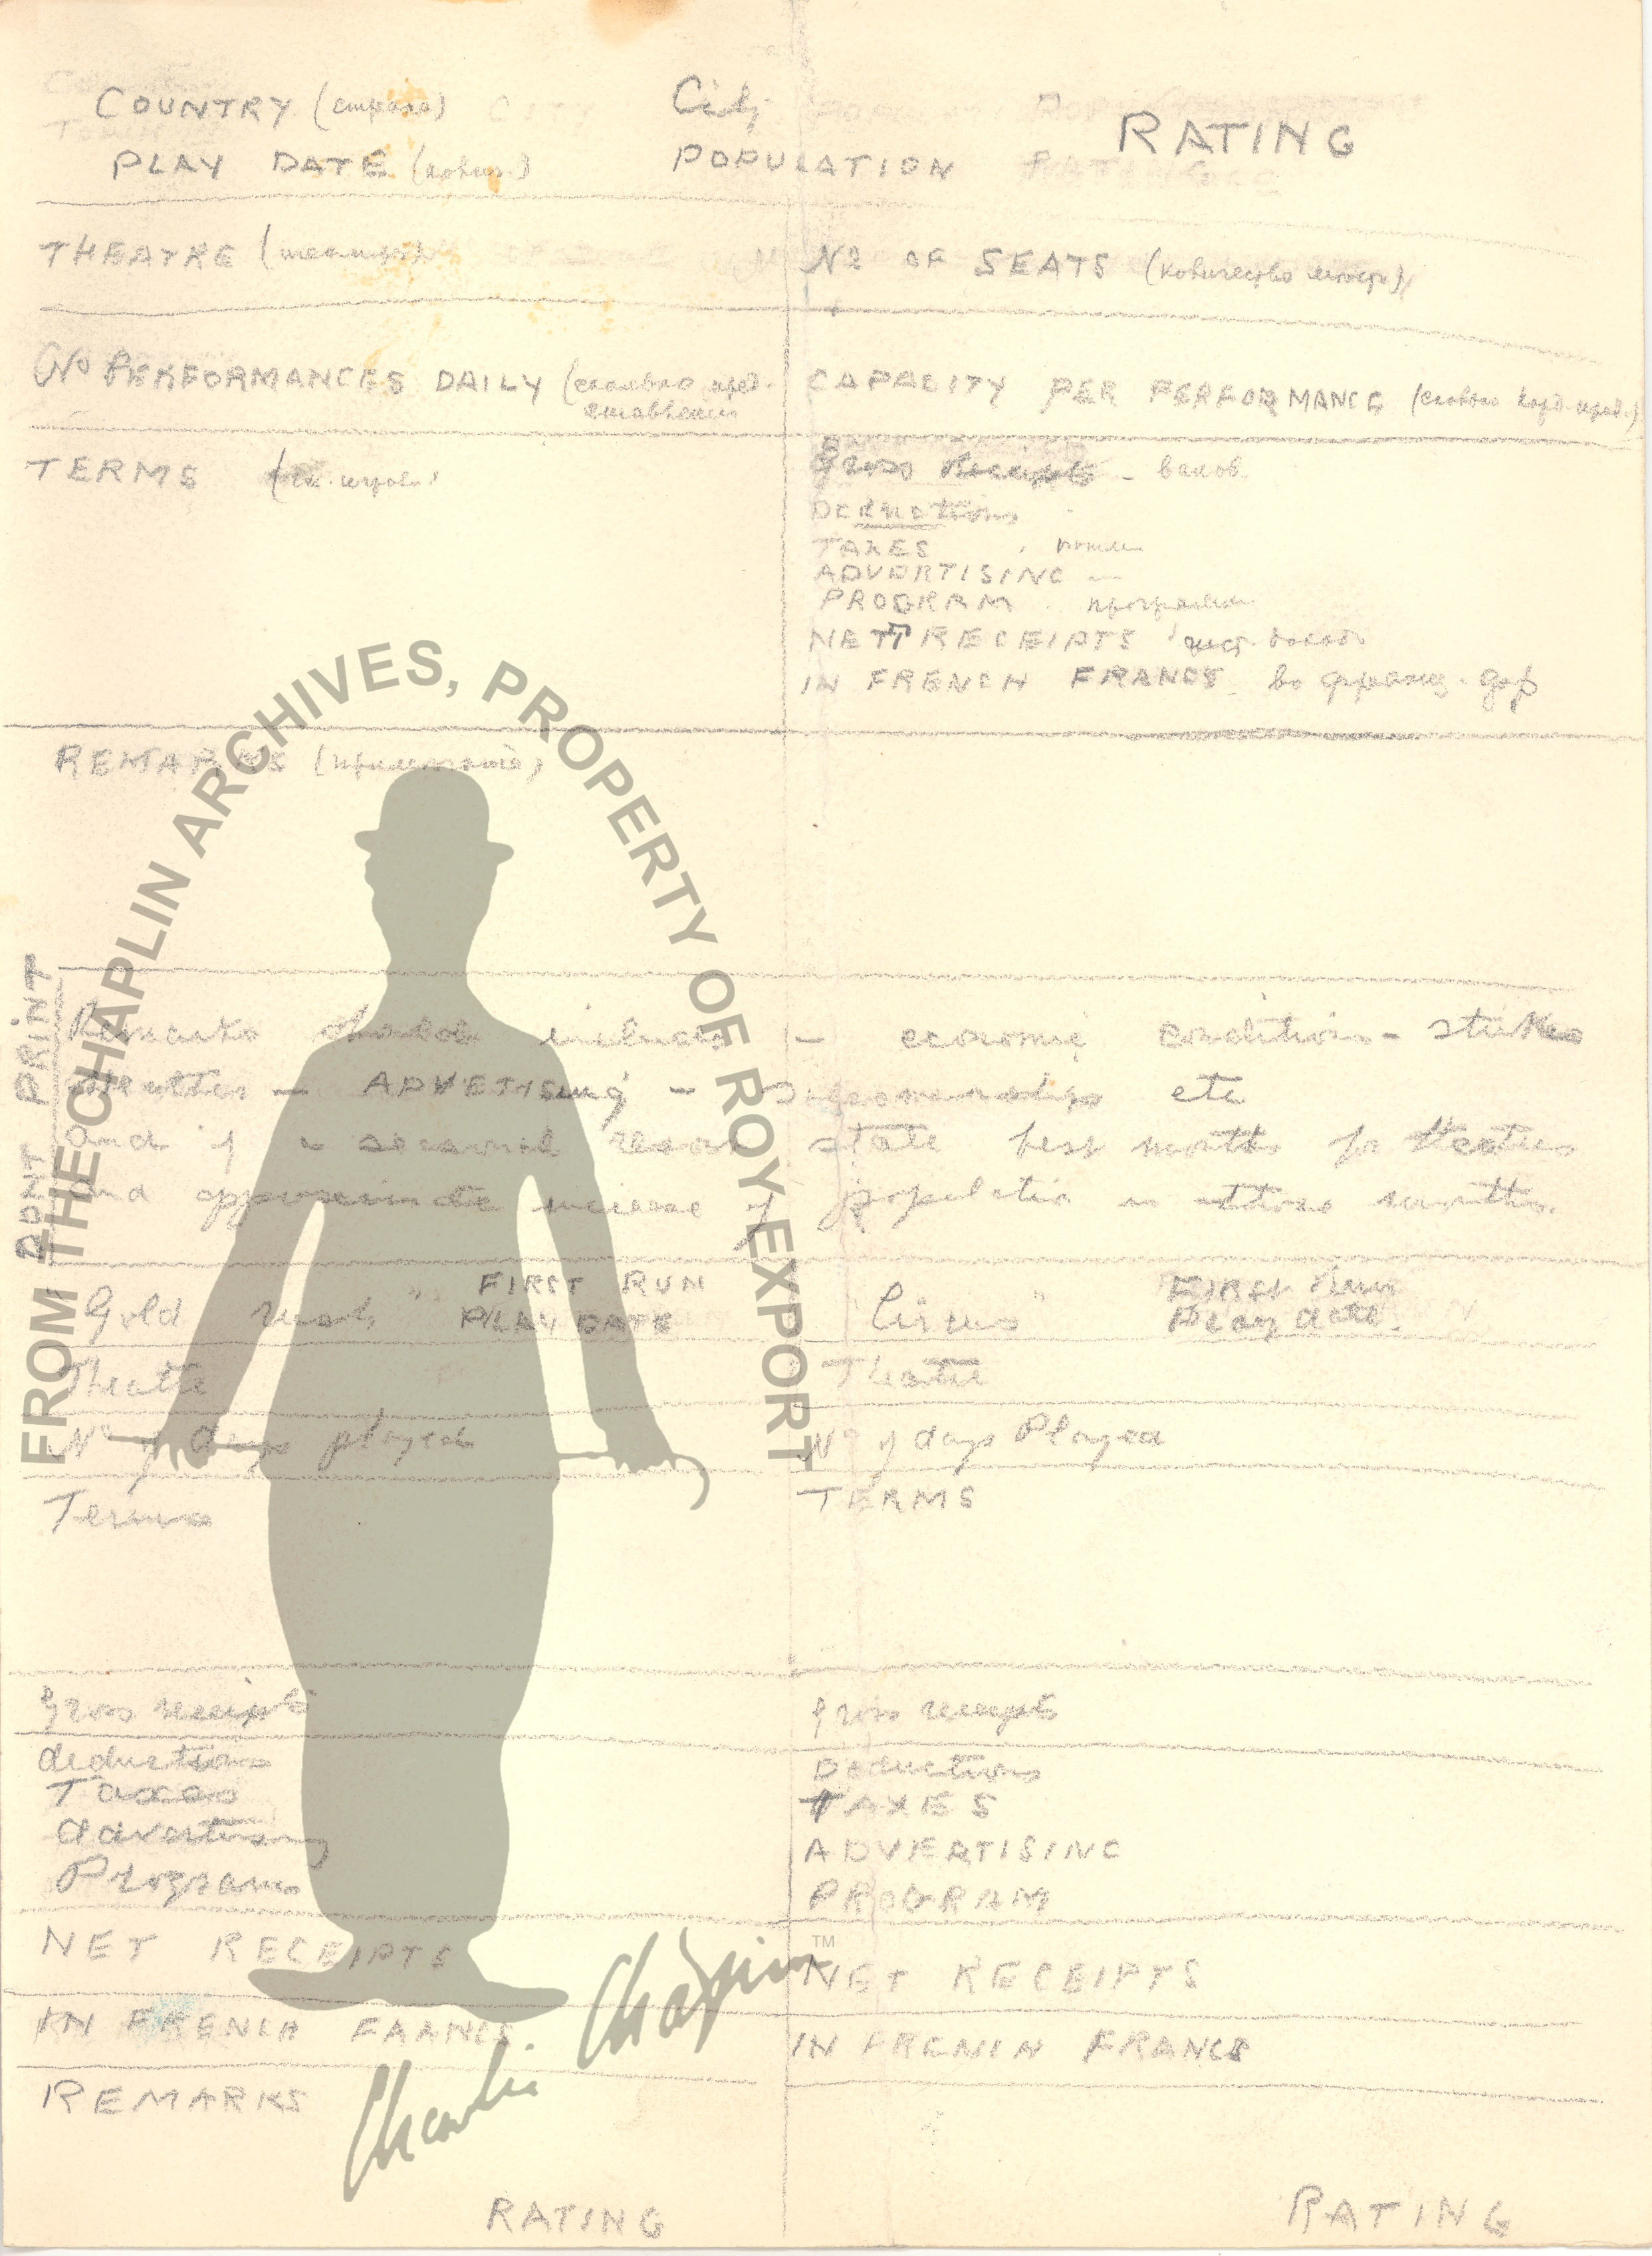 COUNTRY (страна)
City
RATING
PLAY DATE
POPULATION
THEATRE (театръ)
No OF SEATS (количество мѣстъ)
No PERFORMANCES DAILY (сколько пред-
ставленій
CAPACITY PER PERFORMANCE
TERMS
Gross Receipts - валов.
Deductions
TAXES
ADVERTISING —
PROGRAM программы
NETT RECEIPTS чист. валов.
IN FRENCH FRANCS во франц.
REMARKS (примечанія)
DONT PRINT
Remarks should include - economic conditions - strikes
weather - ADVETISING - etc
and if a seasonal resort state best months for theatres
and approximate increase of population in those months.
Gold rush " FIRST RUN
PLAY DATE
"Circus" FIRST Run
Play date.
Theatre
Theatre
No of days played
No of days Played
Terms
TERMS
Gross receipts
Gross receipts
deductions
Deductions
Taxes
TAXES
advertising
ADVERTISING
Programs
PROGRAM
NET RECEIPTS
NET RECEIPTS
IN FRENCH FRANCS.
IN FRENCH FRANCS
REMARKS
RATING
RATING
FROM THE CHAPLIN ARCHIVES, PROPERTY OF ROY EXPORT
Charlie Chaplin TM